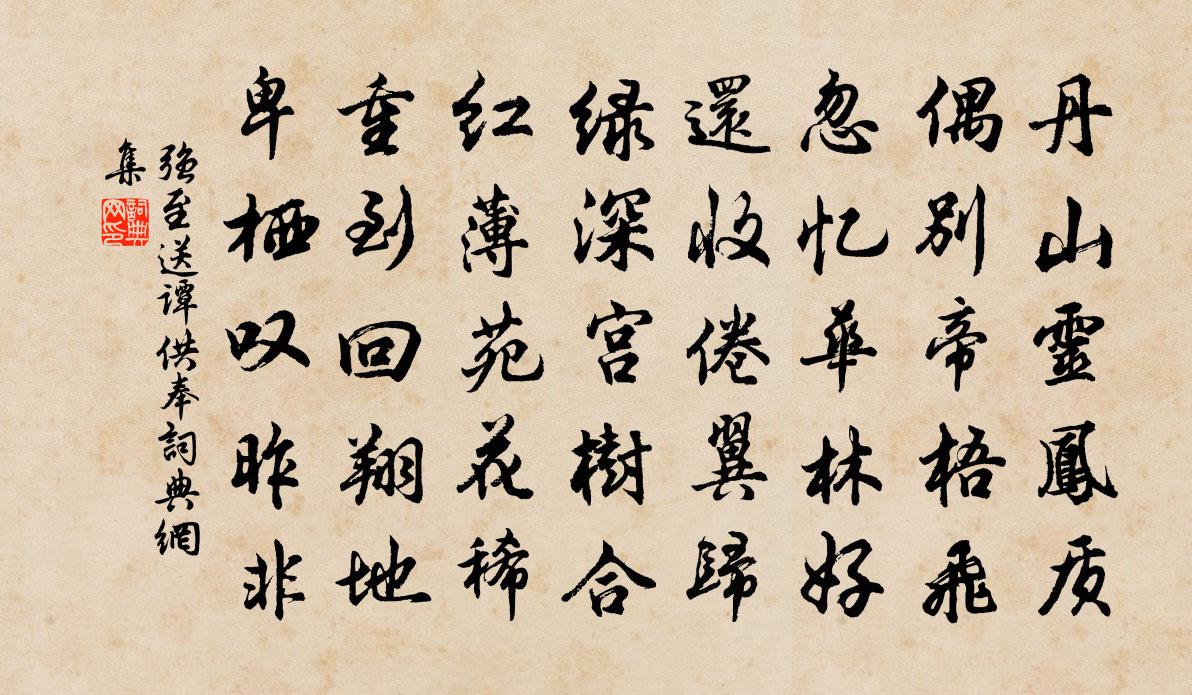 丹山靈鳳质
偶别帝梧飛
忽忆華林好
還收倦翼歸
绿深宫樹合
红薄苑花稀
重到回翔地
卑栖叹昨非
强至送谭供奉詞典網
集
詞典网印